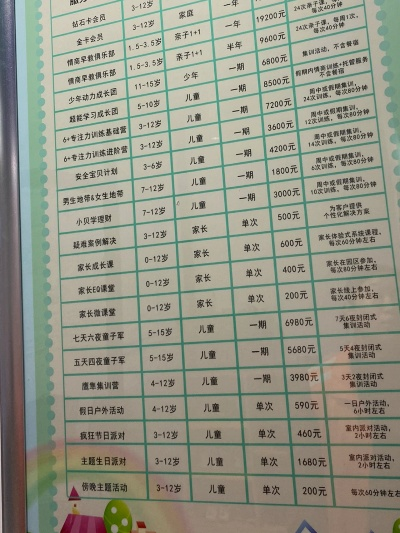 钻石卡会员 3-12岁
金卡会员 3-12岁 家庭 一年
情商早教俱乐部 1.5-3.5岁 亲子1+1 一年 19200元 每次40分钟
情商早教俱乐部 1.5-3.5岁 亲子1+1 半年 9600元 每周1次, 每次40分钟
少年动力成长团 11-15岁 少年 一期 6800元 集训活动, 不含餐宿
超能学习成长团 5-10岁 儿童 一期 8500元 假期内情商训练+托管服务
不含餐宿
6+专注力训练基础营 3-12岁 儿童 一期 7200元 周中或假期集训,
24次训练, 每次80分钟
6+专注力训练进阶营 3-12岁 儿童 一期 3600元 周中或假期集训,
12次训练, 每次40分钟
安全宝贝计划 3-6岁 儿童 一期 4200元 周中或假期集训,
14次训练, 每次80分钟
男生地带&女生地带 7-12岁 儿童 一期 1800元 周中或假期集训,
6次训练, 每次80分钟
小贝学理财 7-12岁 儿童 一期 3000元 周中或假期集训,
10次训练, 每次80分钟
疑难案例解决 3-12岁 家长 单次 500元 为客户提供
个性化解决方案
家长成长课 0-12岁 家长 单次 600元 家长体验式系统课程,
每次60分钟左右
家长EQ课堂 0-12岁 家长 单次 400元 家长在园区参加,
每次80分钟左右
家长微课堂 0-12岁 家长 单次 200元 家长线上参加,
每次40分钟左右
七天六夜童子军 5-15岁 儿童 一期 6980元 7天6夜封闭式
集训活动
五天四夜童子军 5-15岁 儿童 一期 5680元 5天4夜封闭式
集训活动
鹰隼集训营 4-12岁 儿童 一期 3980元 3天2夜封闭式
集训活动
假日户外活动 4-12岁 儿童 单次 590元 一日户外活动,
6小时左右
疯狂节日派对 3-12岁 儿童 单次 460元 室内派对活动,
2小时左右
主题生日派对 3-12岁 儿童 单次 1680元 室内派对活动,
2小时左右
傍晚主题活动 3-12岁 儿童 单次 200元 每次60分钟左右